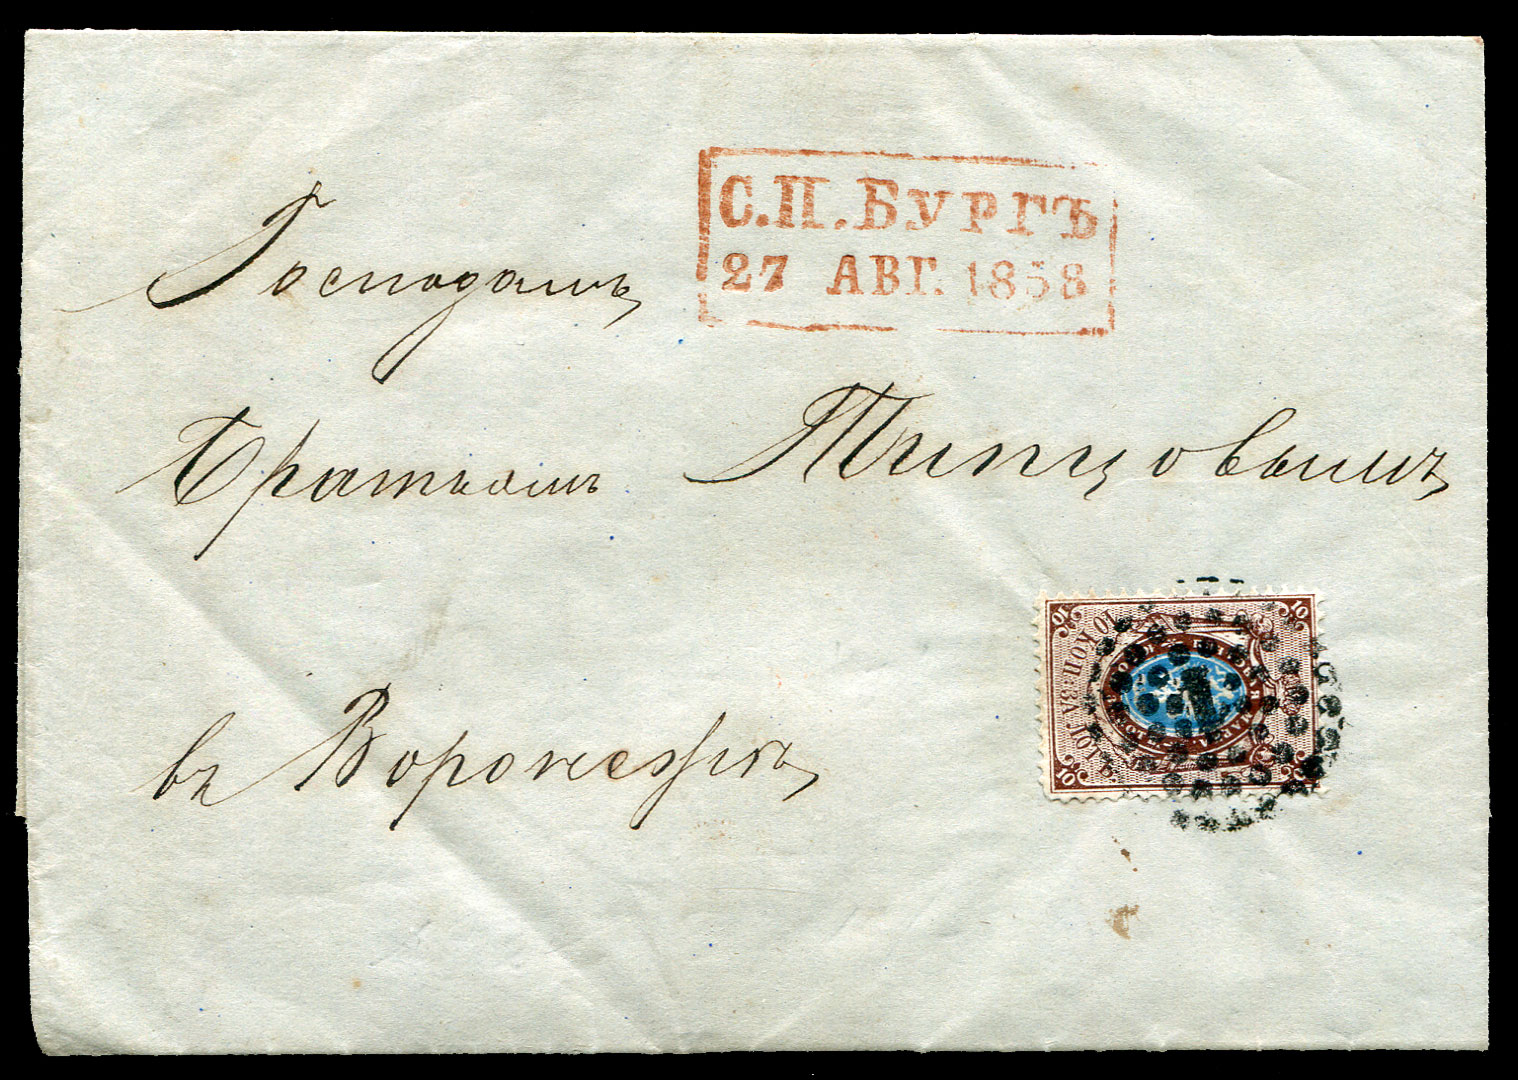 С.П.БУРГЪ
27 АВГ. 1858
Господамъ
Братьямъ Типцовымъ
въ Воронежъ
10 КОП. ЗА ЛОТЪ
10
10
10
1